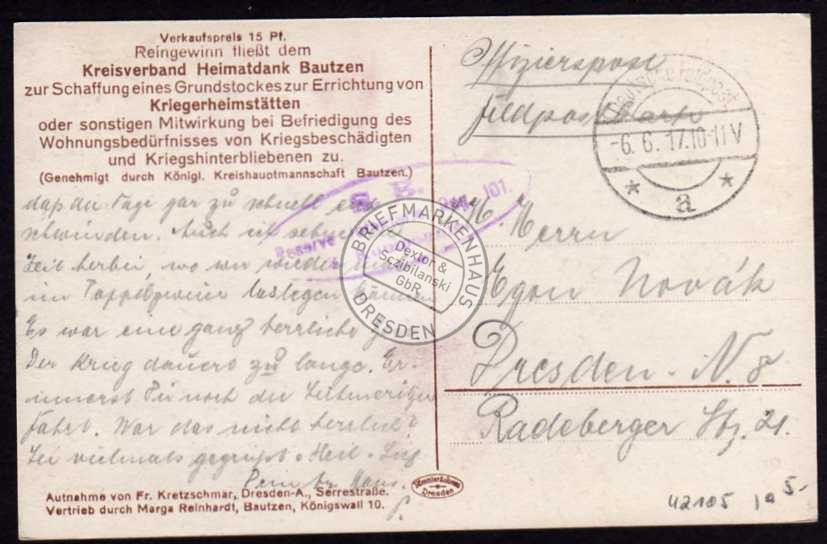 Verkaufspreis 15 Pf.
Reingewinn fließt dem
Kreisverband Heimatdank Bautzen
zur Schaffung eines Grundstockes zur Errichtung von
Kriegerheimstätten
oder sonstigen Mitwirkung bei Befriedigung des
Wohnungsbedürfnisses von Kriegsbeschädigten
und Kriegshinterbliebenen zu.
(Genehmigt durch Königl. Kreishauptmannschaft Bautzen.)
daß die Tage gar zu schnell
schwinden. Auch ich
Zeit herbei, wo wir wieder
im
Es war eine ganz herrliche
Der Krieg dauert zu lange. Er-
innerst Du noch der Leitmeritzer
fahrt. War das nicht herrlich?
Sei vielmals gegrüßt
Dein Hans.
Aufnahme von Fr. Kretzschmar, Dresden-A., Serrestraße.
Vertrieb durch Marga Reinhardt, Bautzen, Königswall 10.
S. B.
Reserve 101.
BRIEFMARKENHAUS
Dexlor &
Sczibilanski
GbR
DRESDEN
Offizierspost
Feldpostkarte
-6. 6. 17. 10-11 V
* a *
H. Herrn
Egon Novák
Dresden-N. 8
Radeberger Str. 21.
Dresden
42105
5.-